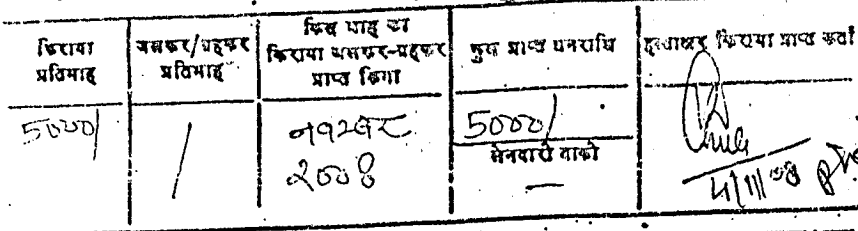 किराया
प्रतिमाह
जलकर/गृहकर
प्रतिमाह
किस माह का
किराया जलकर-गृहकर
प्राप्त किया
कुल प्राप्त धनराशि
हस्ताक्षर किराया प्राप्त कर्ता
5000/
/
नवम्बर
२००४
5000/
लेनदारी बाकी
—